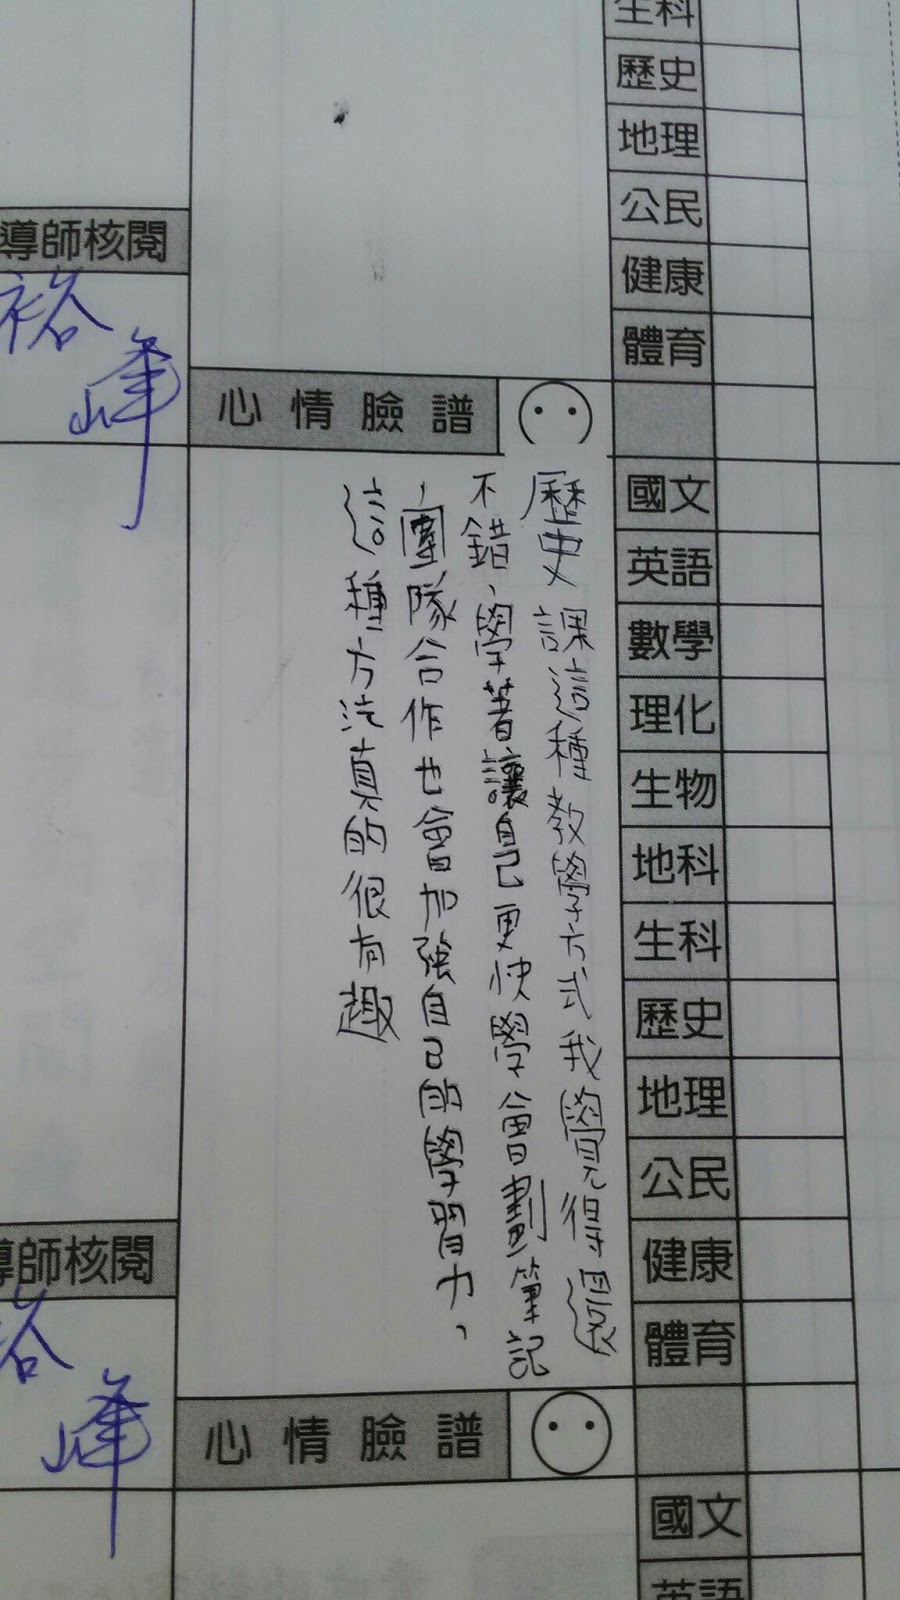 生科
歷史
地理
公民
健康
體育
國文
英語
數學
理化
生物
地科
生科
歷史
地理
公民
健康
體育
國文
英語
心情臉譜
歷史課這種教學方式我覺得還
不錯、學著讓自己更快學會劃筆記
，團隊合作也會加強自己的學習力、
這種方法真的很有趣
心情臉譜
導師核閱
裕峰
導師核閱
裕峰